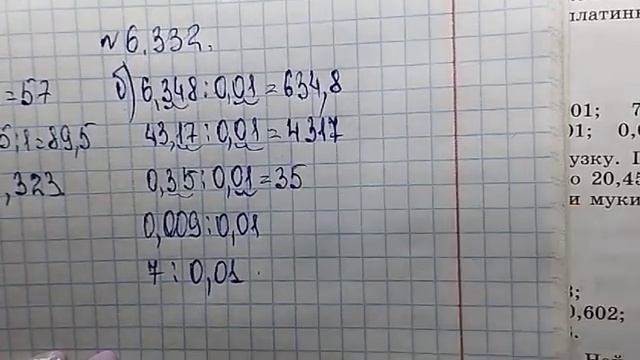 № 6.332.
=57
б) 6,348 : 0,01 = 634,8
5:1=89,5
43,17 : 0,01 = 4317
,323
0,35 : 0,01 = 35
0,009 : 0,01
7 : 0,01.
платин
01; 7
01; 0,0
узку. П
о 20,45
и муки
3;
0,602;